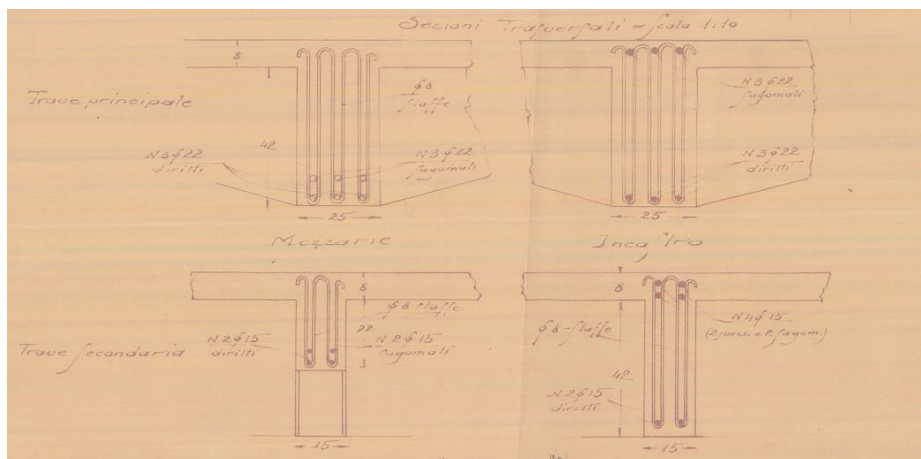 Sezioni Trasversali = scala 1:10
Trave principale
8
42
φ8
staffe
N 3 φ 22
diritti
N 3 φ 22
sagomati
25
Mezzarie
N 3 φ 22
sagomati
N 3 φ 22
diritti
25
Incastro
Trave secondaria
8
φ 8 staffe
22
N 2 φ 15
diritti
N 2 φ 15
sagomati
15
8
φ 8 - staffe
N 4 φ 15
42
N 2 φ 15
diritti
15